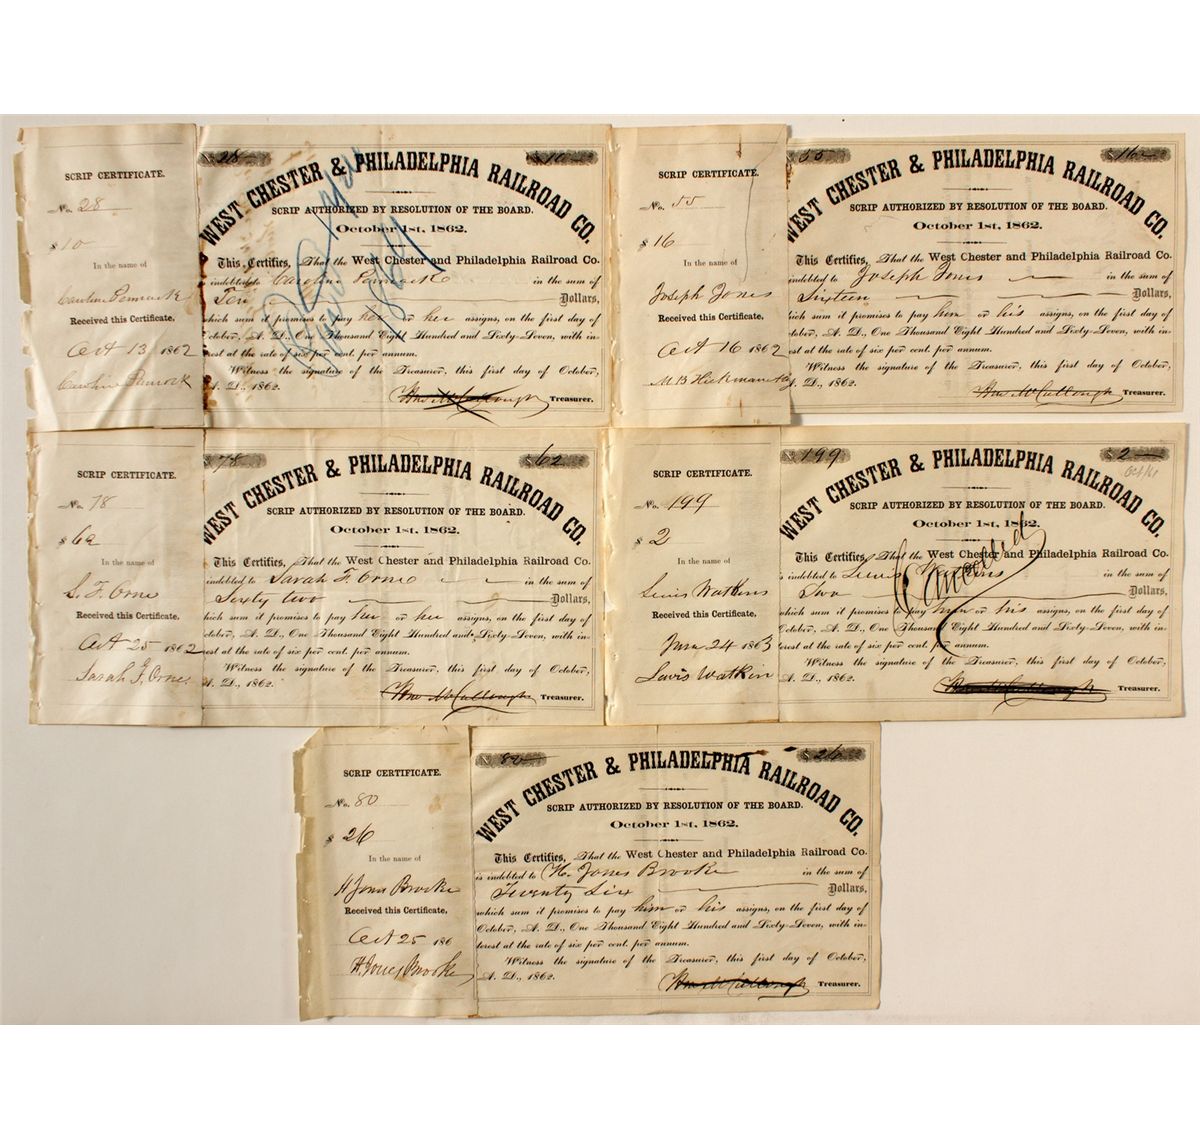 SCRIP CERTIFICATE.
No. 28
$ 10
In the name of
Caroline Pennock
Received this Certificate,
Oct 13 1862
Caroline Pennock
28 $ 10
WEST CHESTER & PHILADELPHIA RAILROAD CO.
SCRIP AUTHORIZED BY RESOLUTION OF THE BOARD.
October 1st, 1862.
This Certifies, That the West Chester and Philadelphia Railroad Co.
is indebted to Caroline Pennock in the sum of
Ten Dollars,
which sum it promises to pay her or her assigns, on the first day of
October, A. D., One Thousand Eight Hundred and Sixty-Seven, with in-
terest at the rate of six per cent. per annum.
Witness the signature of the Treasurer, this first day of October,
A. D., 1862.
Treasurer.
SCRIP CERTIFICATE.
No. 55
$ 16
In the name of
Joseph Jones
Received this Certificate,
Oct 16 1862
55 $ 16
WEST CHESTER & PHILADELPHIA RAILROAD CO.
SCRIP AUTHORIZED BY RESOLUTION OF THE BOARD.
October 1st, 1862.
This Certifies, That the West Chester and Philadelphia Railroad Co.
indebted to Joseph Jones in the sum of
Sixteen Dollars,
which sum it promises to pay him or his assigns, on the first day of
October, A. D., One Thousand Eight Hundred and Sixty-Seven, with in-
terest at the rate of six per cent. per annum.
Witness the signature of the Treasurer, this first day of October,
A. D., 1862.
McCullough Treasurer.
SCRIP CERTIFICATE.
No. 78
$ 62
In the name of
S. F. Orne
Received this Certificate,
Oct 25 1862
Sarah F. Orne
78 $ 62
WEST CHESTER & PHILADELPHIA RAILROAD CO.
SCRIP AUTHORIZED BY RESOLUTION OF THE BOARD.
October 1st, 1862.
This Certifies, That the West Chester and Philadelphia Railroad Co.
indebted to Sarah F. Orne in the sum of
Sixty two Dollars,
which sum it promises to pay her or her assigns, on the first day of
October, A. D., One Thousand Eight Hundred and Sixty-Seven, with in-
terest at the rate of six per cent. per annum.
Witness the signature of the Treasurer, this first day of October,
A. D., 1862.
McCullough Treasurer.
SCRIP CERTIFICATE.
No. 199
$ 2
In the name of
Lewis Watkins
Received this Certificate,
24 1863
Lewis Watkin
199 $ 2
WEST CHESTER & PHILADELPHIA RAILROAD CO.
SCRIP AUTHORIZED BY RESOLUTION OF THE BOARD.
October 1st, 1862.
This Certifies, That the West Chester and Philadelphia Railroad Co.
is indebted to Lewis Watkins in the sum of
Two Dollars,
which sum it promises to pay him or his assigns, on the first day of
October, A. D., One Thousand Eight Hundred and Sixty-Seven, with in-
terest at the rate of six per cent. per annum.
Witness the signature of the Treasurer, this first day of October,
A. D., 1862.
Cancelled
Treasurer.
SCRIP CERTIFICATE.
No. 80
$ 26
In the name of
H Jones Brooke
Received this Certificate,
Oct 25 186
H. Jones Brooke
80 $ 26
WEST CHESTER & PHILADELPHIA RAILROAD CO.
SCRIP AUTHORIZED BY RESOLUTION OF THE BOARD.
October 1st, 1862.
This Certifies, That the West Chester and Philadelphia Railroad Co.
is indebted to H. Jones Brooke in the sum of
Twenty Six Dollars,
which sum it promises to pay him or his assigns, on the first day of
October, A. D., One Thousand Eight Hundred and Sixty-Seven, with in-
terest at the rate of six per cent. per annum.
Witness the signature of the Treasurer, this first day of October,
A. D., 1862.
McCullough Treasurer.